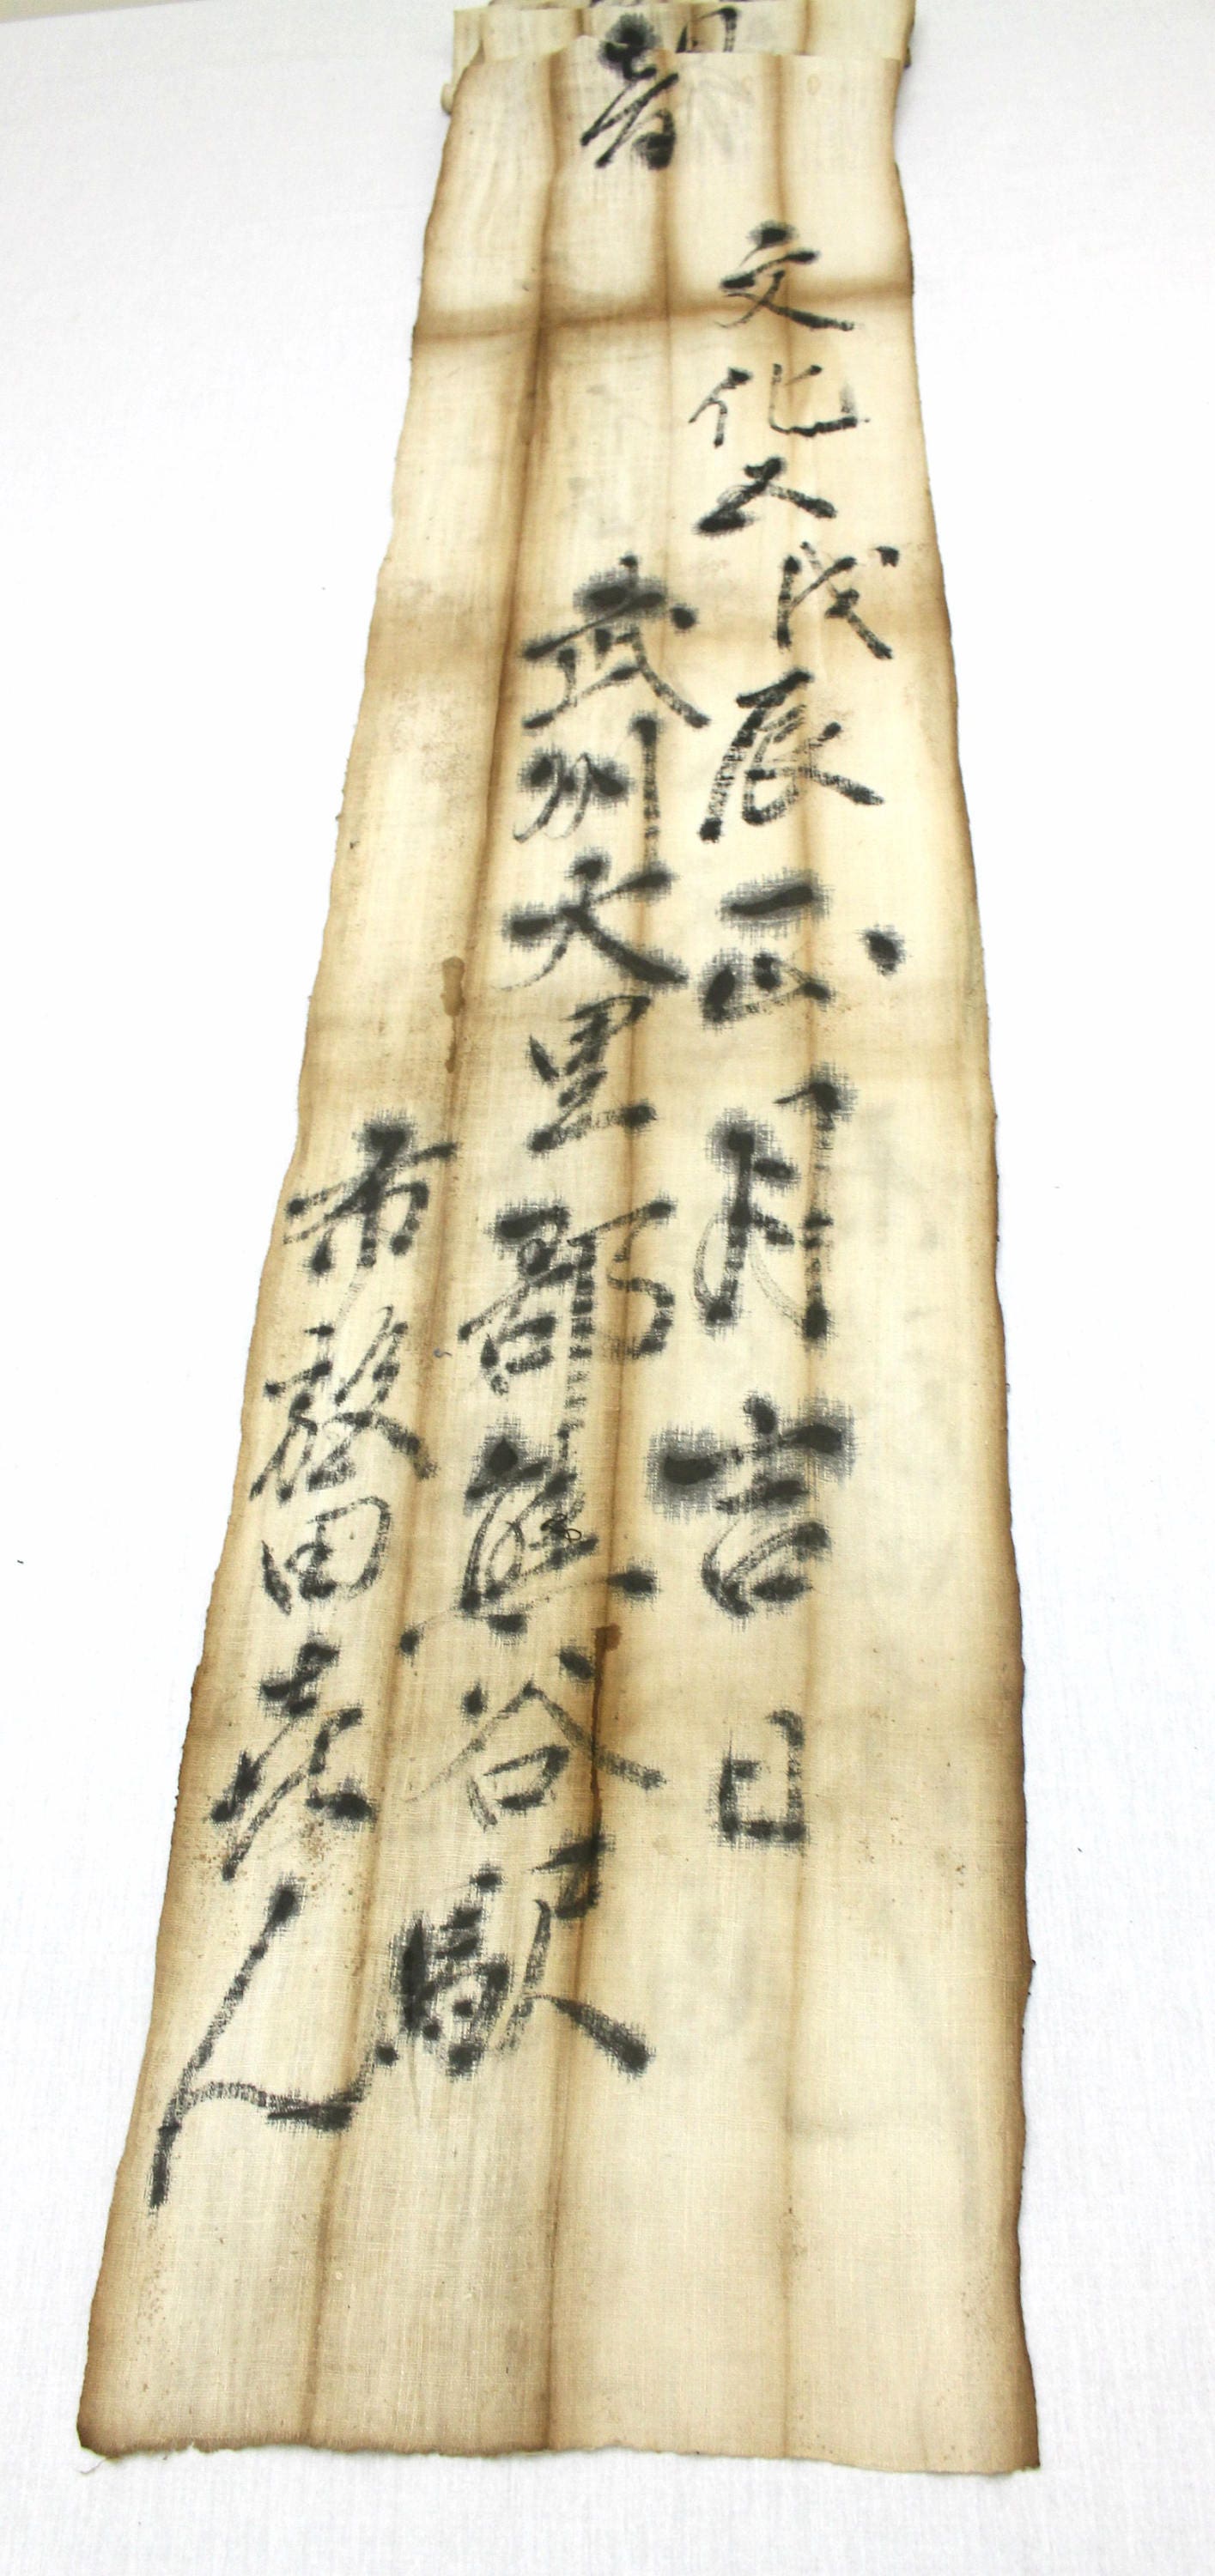 者
文化五戊辰正月吉日
武州大里郡熊谷駅
田